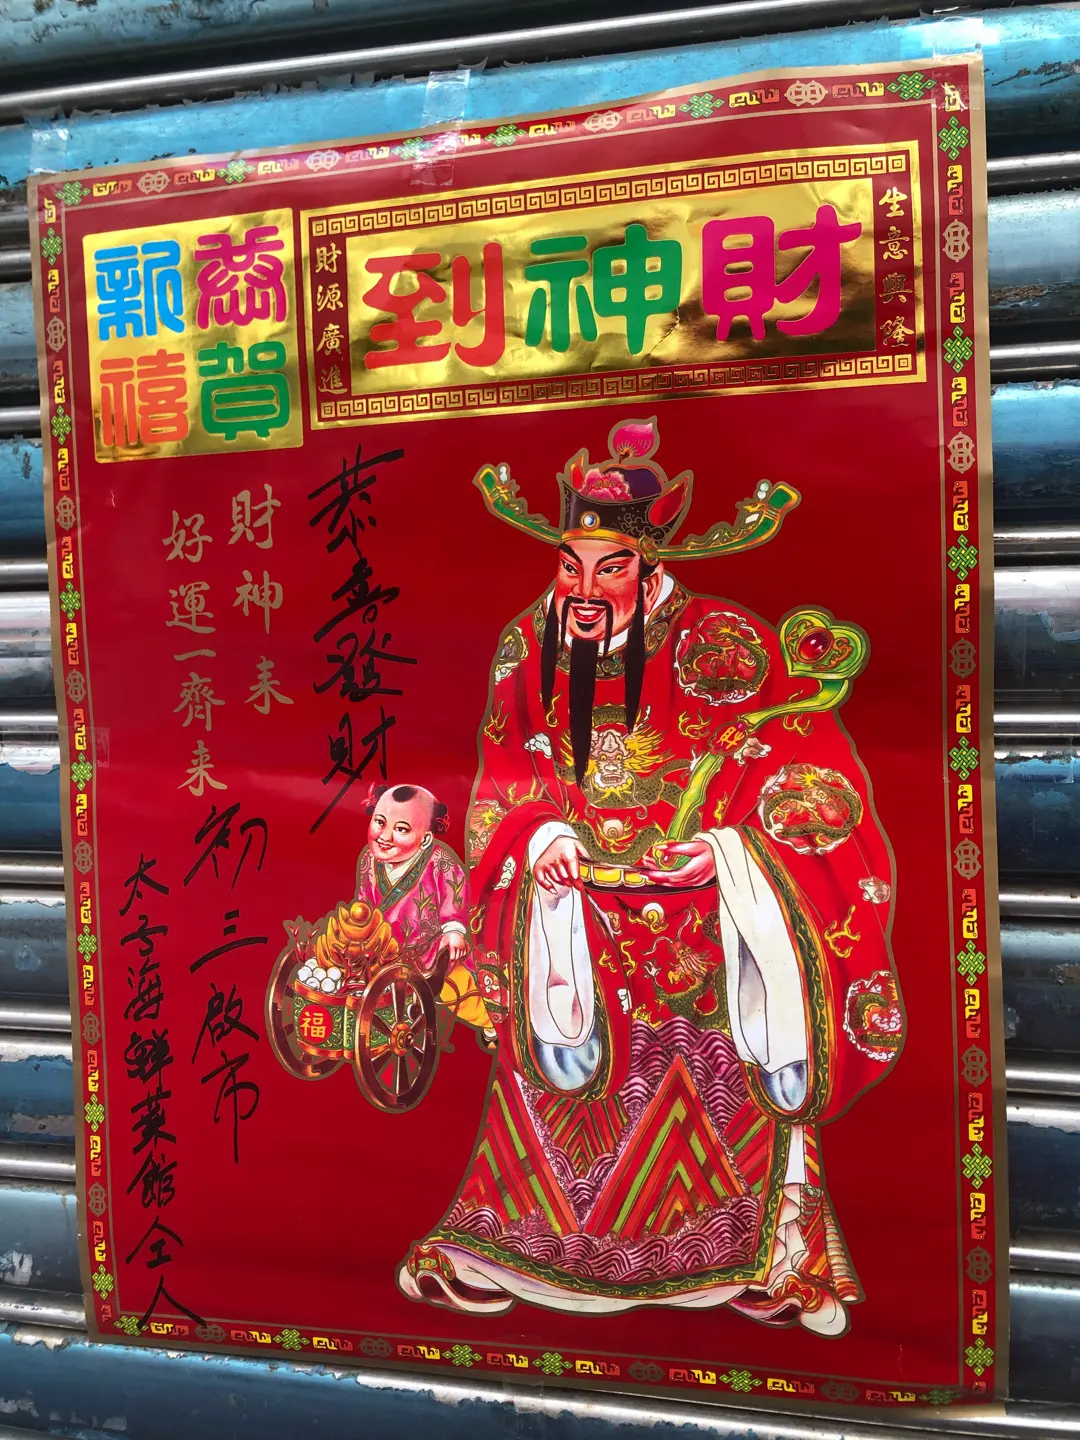 財神到
生意興隆
財源廣進
恭賀
新禧
恭喜發財
財神来
好運一齊来
初三啟市
太子海鮮菜館仝人
福